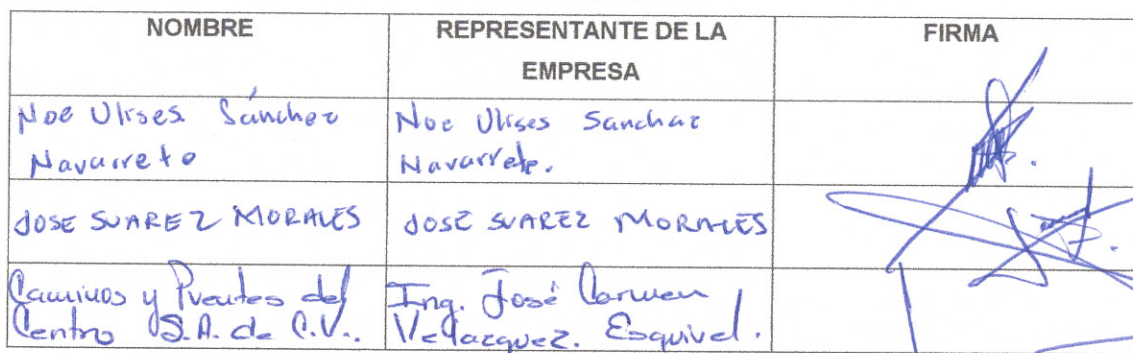 NOMBRE
REPRESENTANTE DE LA
EMPRESA
FIRMA
Noe Ulises Sánchez
Navarrete
Noe Ulises Sanchez
Navarrete.
JOSE SUAREZ MORALES
JOSE SUAREZ MORALES
Caminos y Puentes del
Centro S.A. de C.V..
Ing. José Carmen
Velazquez. Esquivel.